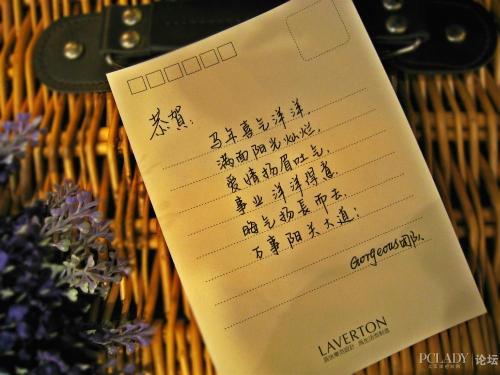 恭賀：
马年喜气洋洋，
满面阳光灿烂，
爱情扬眉吐气，
事业洋洋得意，
晦气扬長而去，
万事阳关大道！
Gorgeous团队
LAVERTON
PCLADY 论坛